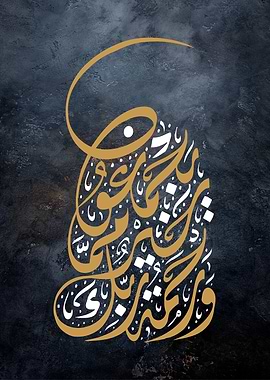 ورحمة ربك
خير مما
يجمعون